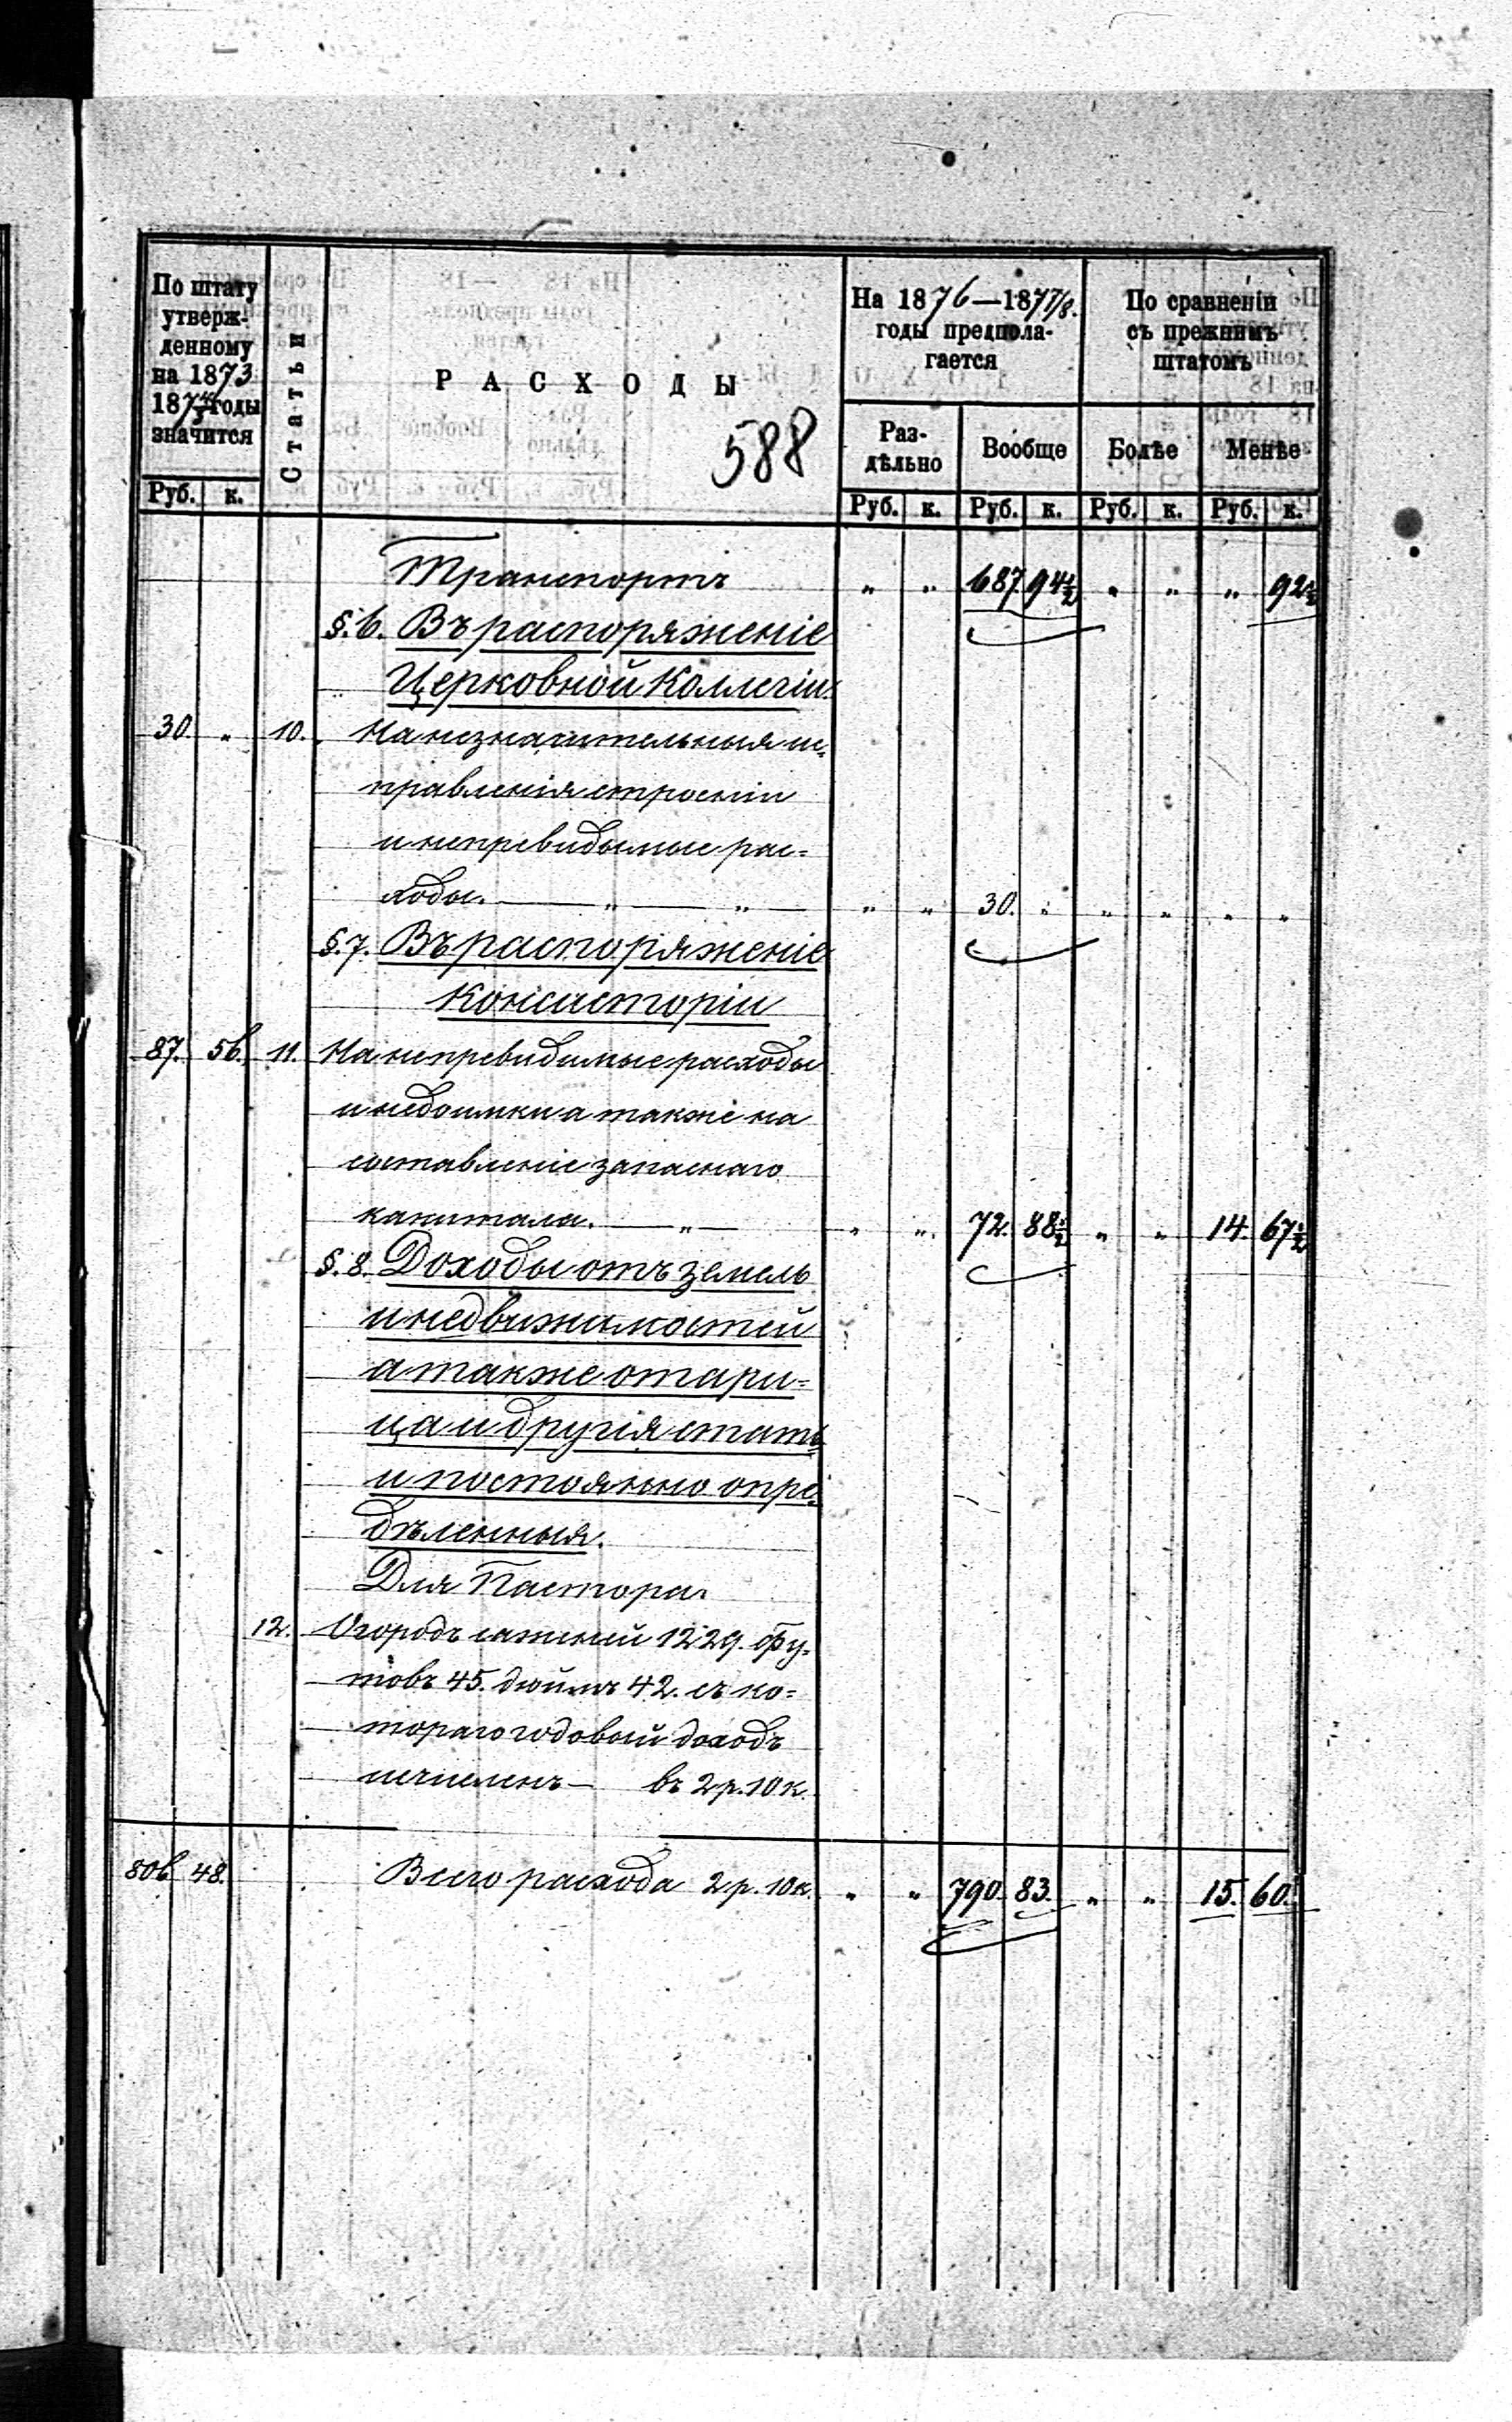 По штату
утверж-
денному
на 1873
187 4/5 годы
значится
Руб. к.
Статьи
РАСХОДЫ
588
На 1876—1877/8.
годы предпола-
гается
Раз-
дѣльно
Вообще
Руб. к. Руб. к.
По сравненіи
съ прежнимъ
штатомъ
Болѣе Менѣе
Руб. к. Руб. к.
Транспортъ „ „ 687 94½ „ „ „ 92½
§. 6. Въ распоряженіе
Церковной Коллегіи.
30. „ 10. На незначительныя ис-
правленія строеніи
и непревидимые рас=
ходы. — „ — „ — „ „ 30. „ „ „ „ „
§. 7. Въ распоряженіе
Консисторіи
87. 56. 11. На непревидимые расходы
и недоимки а также на
составленіе запаснаго
капитала. — „ — „ „ 72. 88½ „ „ 14. 67½
§. 8. Доходы отъ земель
и недвижимостей
а также отари=
ца и другія стать
и постоянно опре-
дѣленныя.
Для Пастора.
12. Огородъ саженей 1229. фу-
товъ 45. дюймъ 42. съ ко=
тораго годовый доходъ
исчисленъ — въ 2 р. 10 к.
806 48. Всего расхода 2 р. 10 к. „ „ 790. 83. „ „ 15. 60.